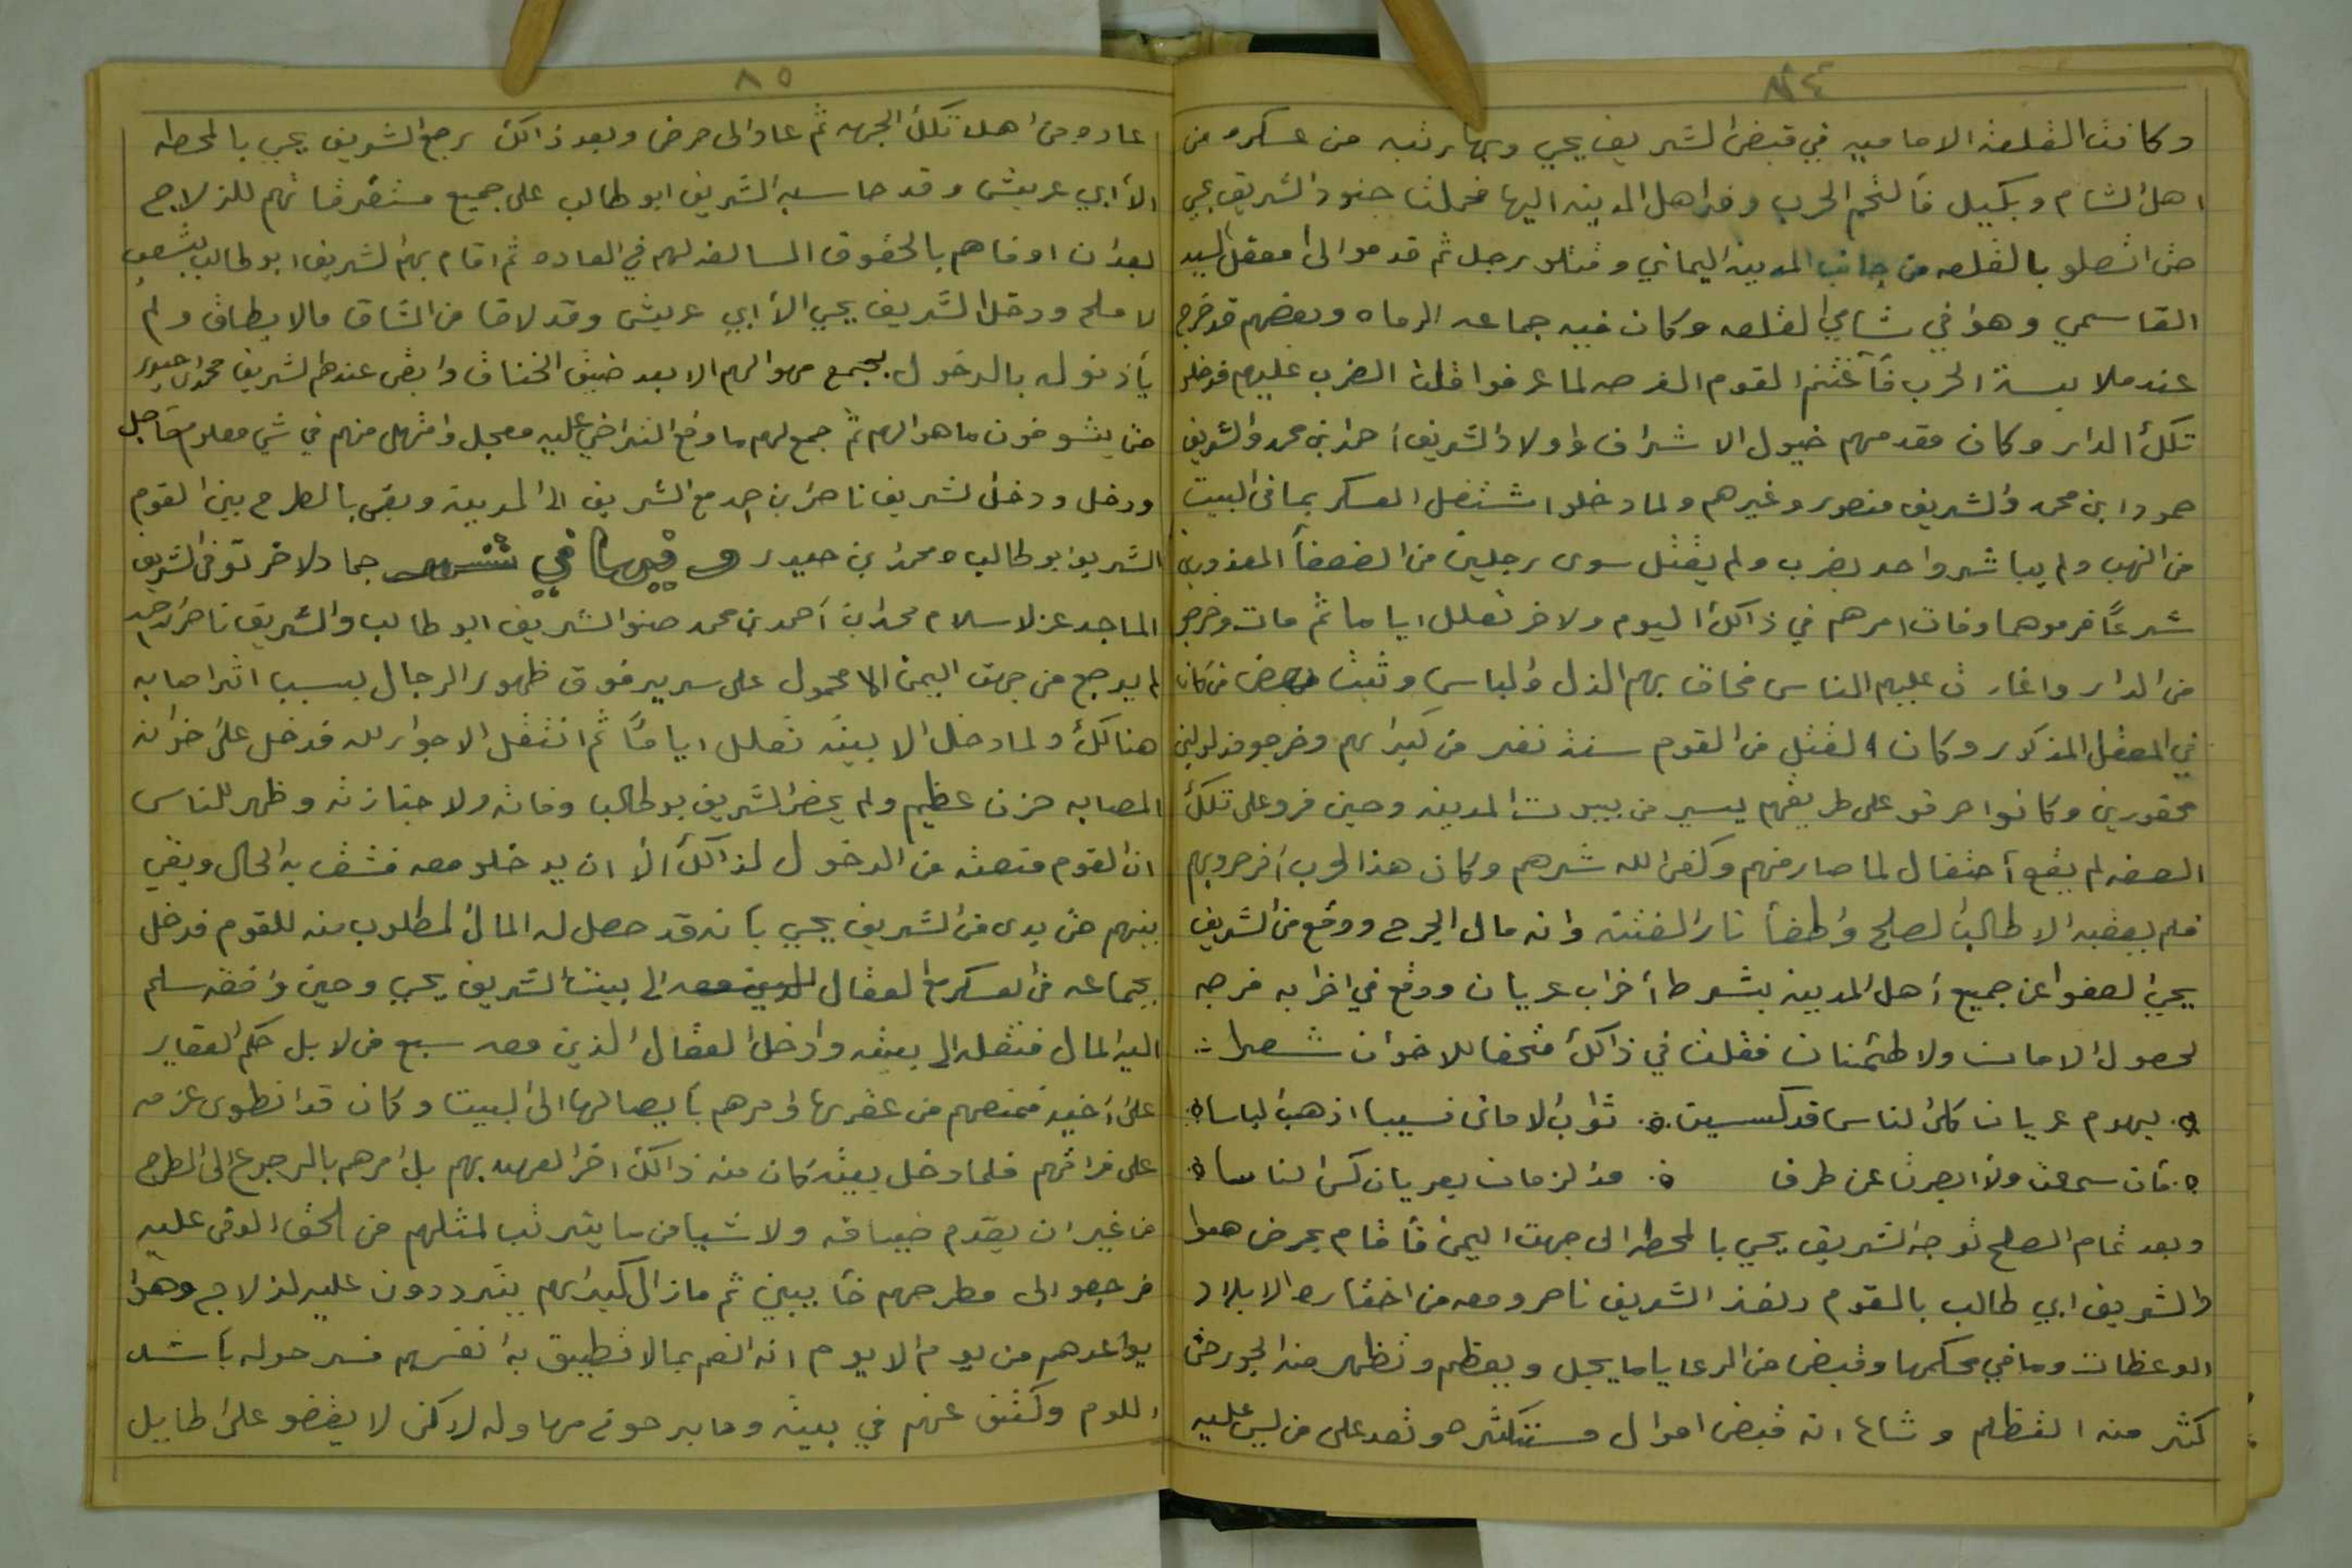 ٨٤
وكانت القلعة الاماميه في قبض الشريف يحيي وبها رتبه من عسكره من
اهل الشام وبكيل فألتحم الحرب وفر اهل المدينه اليها فحملت جنود الشريف يحيي
حتى اتصلو بالقلعه من جانب المدينه اليماني وقتلو رجل ثم قدموا الى معقل السيد
القاسمي وهو في شامي القلعه وكان فيه جماعه الرماه وبعضهم قد خرج
عند ملابسة الحرب فأغتنم القوم الفرصه لما عرفوا قلت الضرب عليهم فدخلو
تلك الدار وكان مقدمهم خيول الاشراف اولاد الشريف احمد بن محمد والشريف
حمود ابن محمد والشريف منصور وغيرهم ولما دخلو اشتغل العسكر بما في البيت
من النهب ولم يباشر واحد بضرب ولم يقتل سوى رجلين من الضعفأ المعذورين
شرعاً فرموهما وفات امرهم في ذالك اليوم ولاخر تعلل اياما ثم مات وخرجو
من الدار واغارت عليهم الناس فحاق بهم الذل والباس وثبت بعض من كان
في المعقل المذكور وكان القتلى من القوم ستة نفر من كبراهم وخرجو مذلولين
محقورين وكانوا حرقو على طريقهم يسير من بيوت المدينه وحين فرو على تلك
الصفه لم يقع أحتفال لما صار منهم وكفى الله شرهم وكان هذا الحرب أخر حروبهم
فلم يعقبه الا طالب الصلح وأطفأ نار الفتنه وانه مال الجرح ووقع من الشريف
يحيي العفو عن جميع أهل المدينه بشرط أخراب عريان ووقع في اخرابه فرجه
لحصول الامان ولاطئمنان فقلت في ذالك متحفا للاخوان شعرا
يهدم عريان كل الناس قد كسيت ثواب لامان نسيبا اذهب الباسا
فأن سمعت ولا ابصرت عن طرف مذ الزمان بعريان كسى الناسا
وبعد تمام الصلح توجه الشريف يحيي بالمحطه الى جهت اليمن فأقام بحرض هوا
والشريف ابي طالب بالقوم ونفذ الشريف ناصر ومعه من اختاره الابلاد
الوعظات وما في محكمها وقبض من الرعايا ما يجل ويعظم وتظهر منه الجور حتى
كثر منه التظلم وشاع انه قبض اموال مستكثره وتعد على من ليس عليه
٨٥
عاده من اهل تلك الجهه ثم عاد الى حرض وبعد ذالك رجع الشريف يحيي بالمحطه
الأ ابي عريش وقد حاسبه الشريف ابو طالب على جميع متفرقاتهم للزلاج
بعد ان اوفاهم بالحقوق السالفه لهم في العاده ثم اقام بهم الشريف ابو طالب بشعب
لاملح ودخل الشريف يحيي الأ ابي عريش وقد لاقا من المشاق مالا يطاق ولم
يأذنو له بالدخول بجمع مهوالهم الا بعد ضيق الخناق وابقى عندهم الشريف محمد ابن حيدر
حتى يتسوفون ما هوالهم ثم جمع لهم ما وقع التراضي عليه معجل وامتهل منهم في شي معلوم مأجل
ودخل ودخل الشريف ناصر ابن احمد مع الشريف الى المدينة وبقي بالمطرح بين القوم
الشريف ابو طالب ومحمد بن حيدر وفيها في شهر جماد لاخر توفى الشريف
الماجد عز لاسلام محمد ابن أحمد بن محمد صنو الشريف ابو طالب والشريف ناصر ابن احمد
لم يرجع من جهت اليمن الا محمول على سرير فوق ظهور الرجال بسبب اثر اصابه
هنالك ولما دخل الا بيته تعلل اياماً ثم انتقل الا جوار الله فدخل على اخوانه
المصابه حزن عظيم ولم يحضر الشريف بو طالب وفاته ولا جنازته وظهر للناس
ان القوم منعته من الدخول لذالك الأ ان يدخلو معه فشق به الحال وبقي
بينهم حتى بدى من الشريف يحيي بأنه قد حصل له المال المطلوب منه للقوم فدخل
بجماعه من العسكر مع العقال الذين معه الى بيت الشريف يحيي وحين وافقه سلم
اليه المال فنقله الى بيته وادخل العقال الذين معه سبع من لابل حكم العقاير
على أخيه فمنعهم من عقرها وامرهم بأيصالها الى البيت وكان قد انطوى عزمه
على فراقهم فلما دخل بيته كان منه ذالك اخر العهد بهم بل امرهم بالرجوع الى المطرح
من غير ان يقدم ضيافه ولا شيا من ما يترتب لمثلهم من الحق الوقى عليه
فرجعو الى مطرحهم خأيبين ثم مازال كبراهم يترددون عليه لزلاج وهوا
يواعدهم من يوم الا يوم انه انعم بما لا تطيق به انفسهم فسر حوله بأشد
اللوم وكشف عنهم في بيته وما برحو في مهاوله لاكن لا يفضو على طايل